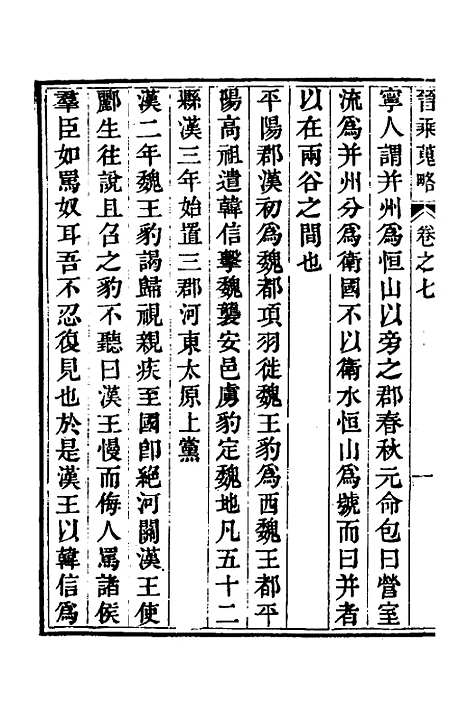 晉乘蒐略 卷之七 一
寧人謂并州為恒山以旁之郡春秋元命包曰營室
流為并州分為衛國不以衛水恒山為號而曰并者
以在兩谷之間也
平陽郡漢初為魏都項羽徙魏王豹為西魏王都平
陽高祖遣韓信擊魏襲安邑虜豹定魏地凡五十二
縣漢三年始置三郡河東太原上黨
漢二年魏王豹謁歸視親疾至國卽絕河關漢王使
酈生往說且召之豹不聽曰漢王慢而侮人罵諸侯
羣臣如罵奴耳吾不忍復見也於是漢王以韓信為